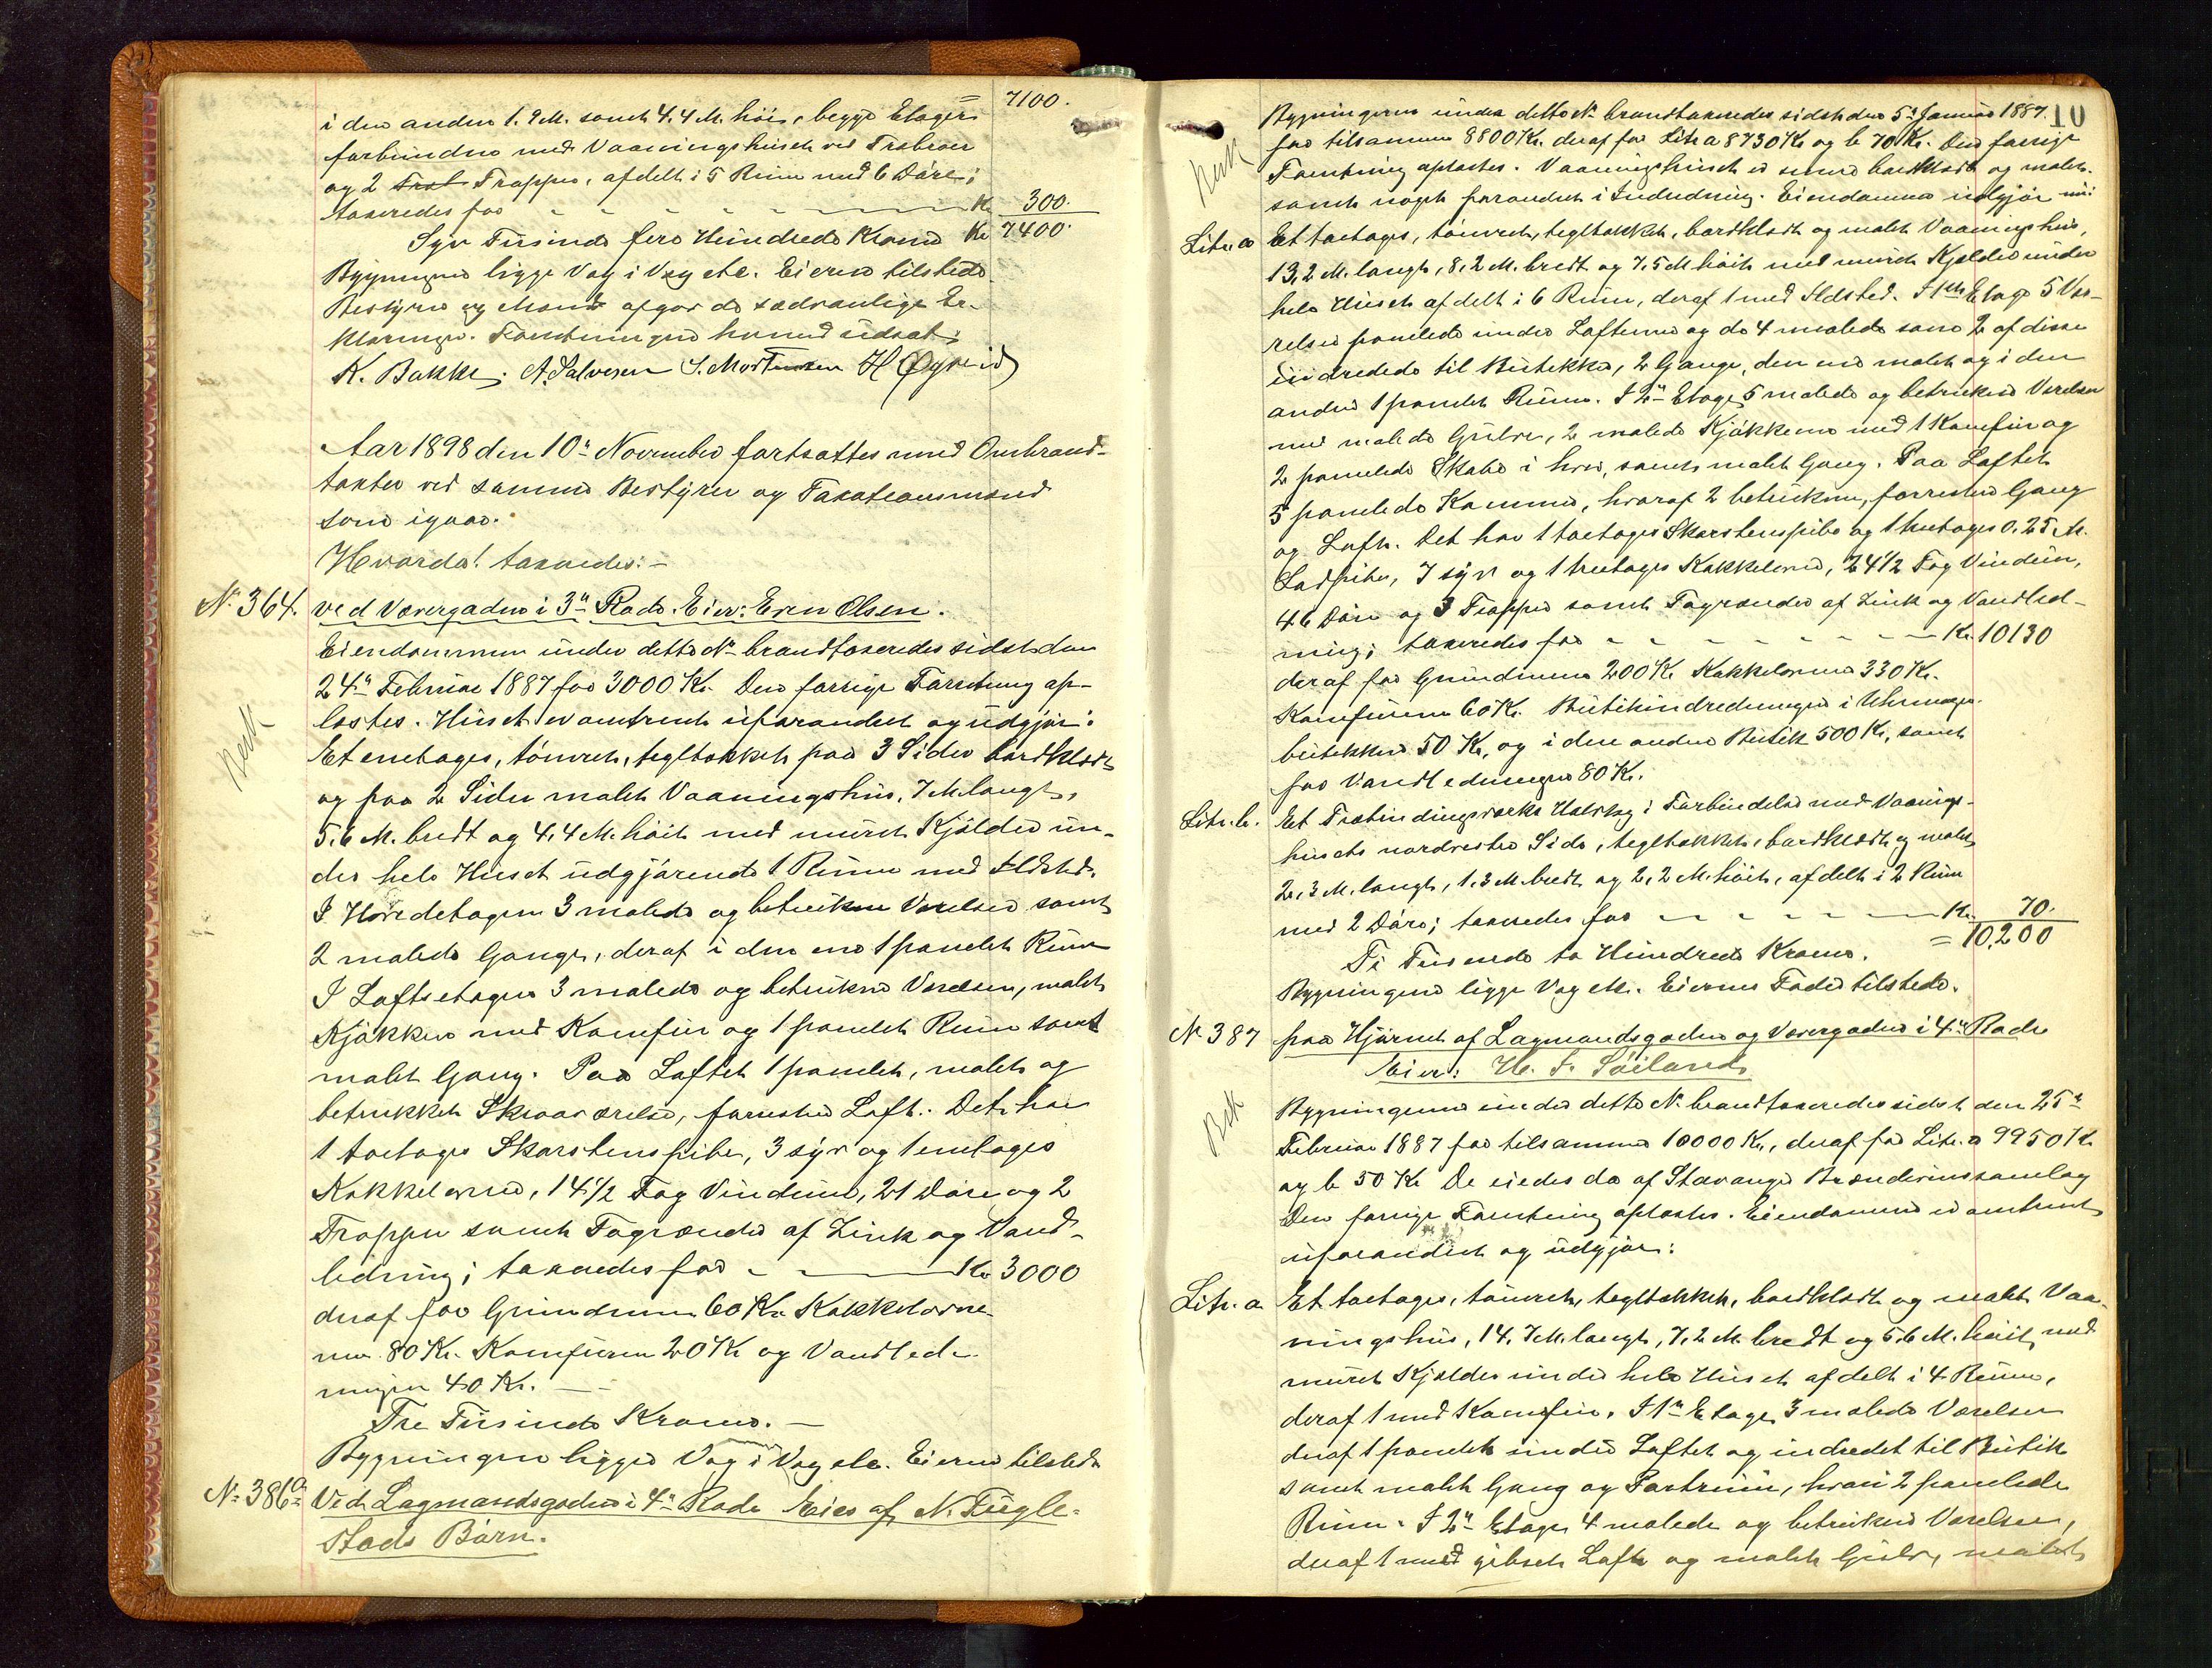 = 7100.
i den anden 1.9 M. samt 4.4 M. höi, begge Etager
forbundne med Vaaningshuset ved Trebroer
og 2 Trapper, afdelt i 5 Rum med 6 Döre;
taxeredes for - - - - Kr 300.
Syv Tusinde fire Hundrede Kroner Kr 7400.
Bygningene ligge Væg i Væg etc. Eieren tilstede.
Bestyrer og Mænd afgav de sædvanlige Er-
klæringer. Forretningen hermed udsat.
K. Bakke. A. Salvesen S. Mortensen H Öyreid
Aar 1898 den 10de November fortsattes med Ombrand-
taxter ved samme Bestyrer og Taxationsmænd
som igaar.
Hvorda! taxeredes: -
No 364. ved Værergaden i 3de Rode. Eier: Even Olsen.
Eiendommen under dette No brandtaxeredes sidst den
24de Februar 1887 for 3000 Kr. Den forrige Forretning op-
læstes. Huset er omtrent uforandret og udgjör:
Et enetages, tömret, tegltækket paa 3 Sider bordklædt
og paa 2 Sider malet Vaaningshus, 7 M. langt,
5.6 M. bredt og 4.4 M. höit med muret Kjelder un-
der hele Huset udgjörende 1 Rum med Ildsted.
I Hovedetagen 3 malede og betrukne Værelser samt
2 malede Gange, deraf i den ene 1 panelet Rum
I Loftsetagen 3 malede og betrukne Værelser, malet
Kjökken med Komfur og 1 panelet Rum samt
malet Gang. Paa Loftet 1 panelet, malet og
betrukket Skraaværelse, forresten Loft. Det har
1 toetages Skorstenspibe, 3 syv og 1 enetages
Kakkelovne, 14½ Fag Vinduer, 21 Döre og 2
Trapper samt Tagrender af Zink og Vand-
ledning; taxeredes for - - Kr 3000
deraf for Grundmuren 60 Kr. Kakkelovne-
ne 80 Kr. Komfuren 20 Kr og Vandled-
ningen 40 Kr. -
Tre Tusinde Kroner. -
Bygningen ligger Væg i Væg etc. Eieren tilstede
No 386a Ved Lagmandsgaden i 4de Rode Eies af N. Fugle-
stads Börn.
10
Bygningerne under dette No brandtaxeredes sidst den 5te Januar 1887.
for tilsammen 8800 Kr. deraf for Litr a 8730 Kr og b 70 Kr. Den forrige
Forretning oplæstes. Vaaningshuset er senere bordklædt og malet
samt noget forandret i Indredning. Eiendommen udgjör nu:
Litr. a Et toetages, tömret, tegltækket, bordklædt og malet Vaaningshus,
13,2 M. langt, 8,2 M. bredt og 7,5 M höit med muret Kjelder under
hele Huset afdelt i 6 Rum, deraf 1 med Ildsted. I 1ste Etage 5 Væ-
relser panelede under Lofterne og de 4 malede samt 2 af disse
indredede til Butikker, 2 Gange, den ene malet og i den
anden 1 panelet Rum. I 2den Etage 5 malede og betrukne Værelser
med malede Gulve, 2 malede Kjökkener med 1 Komfur og
2 panelede Skabe i hver, samt malet Gang. Paa Loftet
5 panelede Kammer, hvoraf 2 betrukne, forresten Gang
og Loft. Det har 1 toetages Skorstenspibe og 1 treetages 0.25 M.
Lodpibe, 7 syv og 1 treetages Kakkelovne, 24½ Fag Vinduer,
46 Döre og 3 Trapper samt Tagrender af Zink og Vandled-
ning; taxeredes for - - - Kr. 10130
deraf for Grundmuren 200 Kr Kakkelovnene 330 Kr.
Komfuren 60 Kr. Butikindredningen i Uhrmager-
butikken 50 Kr. og i den anden Butik 500 Kr, samt
for Vandledningen 80 Kr.
Litr. b. Et Træbindingsværks Udskög i Forbindelse med Vaanings-
husets nordvestre Side, tegltækket, bordklædt og malet
2,3 M. langt, 1.3 M. bredt og 2,2 M. höit, afdelt i 2 Rum
med 2 Döre; taxeredes for - - - Kr. 70.
Ti Tusende to Hundrede Kroner. = 10,200
Bygningene ligge Væg etc. Eiernes Fader tilstede.
No 387 paa Hjörnet af Lagmandsgaden og Værergaden i 4de Rode
Eier: H. S. Söiland
Bygningerne under dette No brandtaxeredes sidst den 25de
Februar 1887 for tilsammen 10000 Kr, deraf for Litr. a 9950 Kr
og b 50 Kr De eiedes da af Stavanger Brændevinssamlag
Den forrige Forretning oplæstes. Eiendommen er omtrent
uforandret og udgjör:
Litr. a Et toetages, tömret, tegltækket, bordklædt og malet Vaa-
ningshus, 14.7 M. langt, 7,2 M. bredt og 5.6 M. höit, med
muret Kjelder under hele Huset afdelt i 4 Rum,
deraf 1 med Komfur. I 1ste Etage 3 malede Værelser
deraf 1 panelet under Loftet og indredet til Butik
samt malet Gang og Portrum, hvori 2 panelede
Rum. I 2den Etage 4 malede og betrukne Værelser,
deraf 1 med gibset Loft og malet Gulv, malet